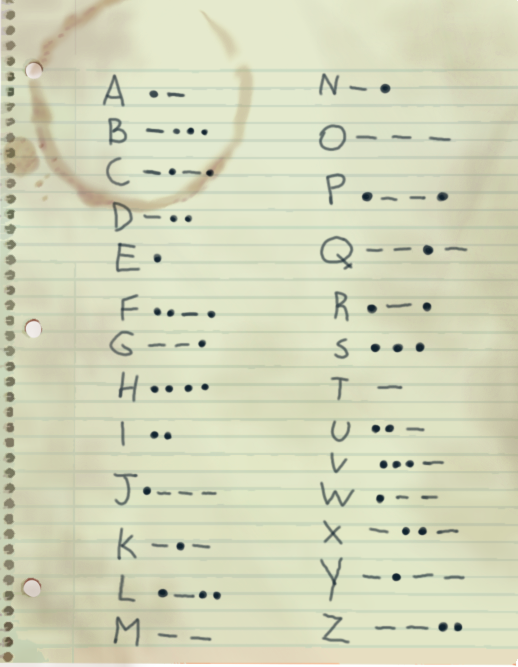 A • —
B — • • •
C — • — •
D — • •
E •
F • • — •
G — — •
H • • • •
I • •
J • — — —
K — • —
L • — • •
M — —
N — •
O — — —
P • — — •
Q — — • —
R • — •
S • • •
T —
U • • —
V • • • —
W • — —
X — • • —
Y — • — —
Z — — • •